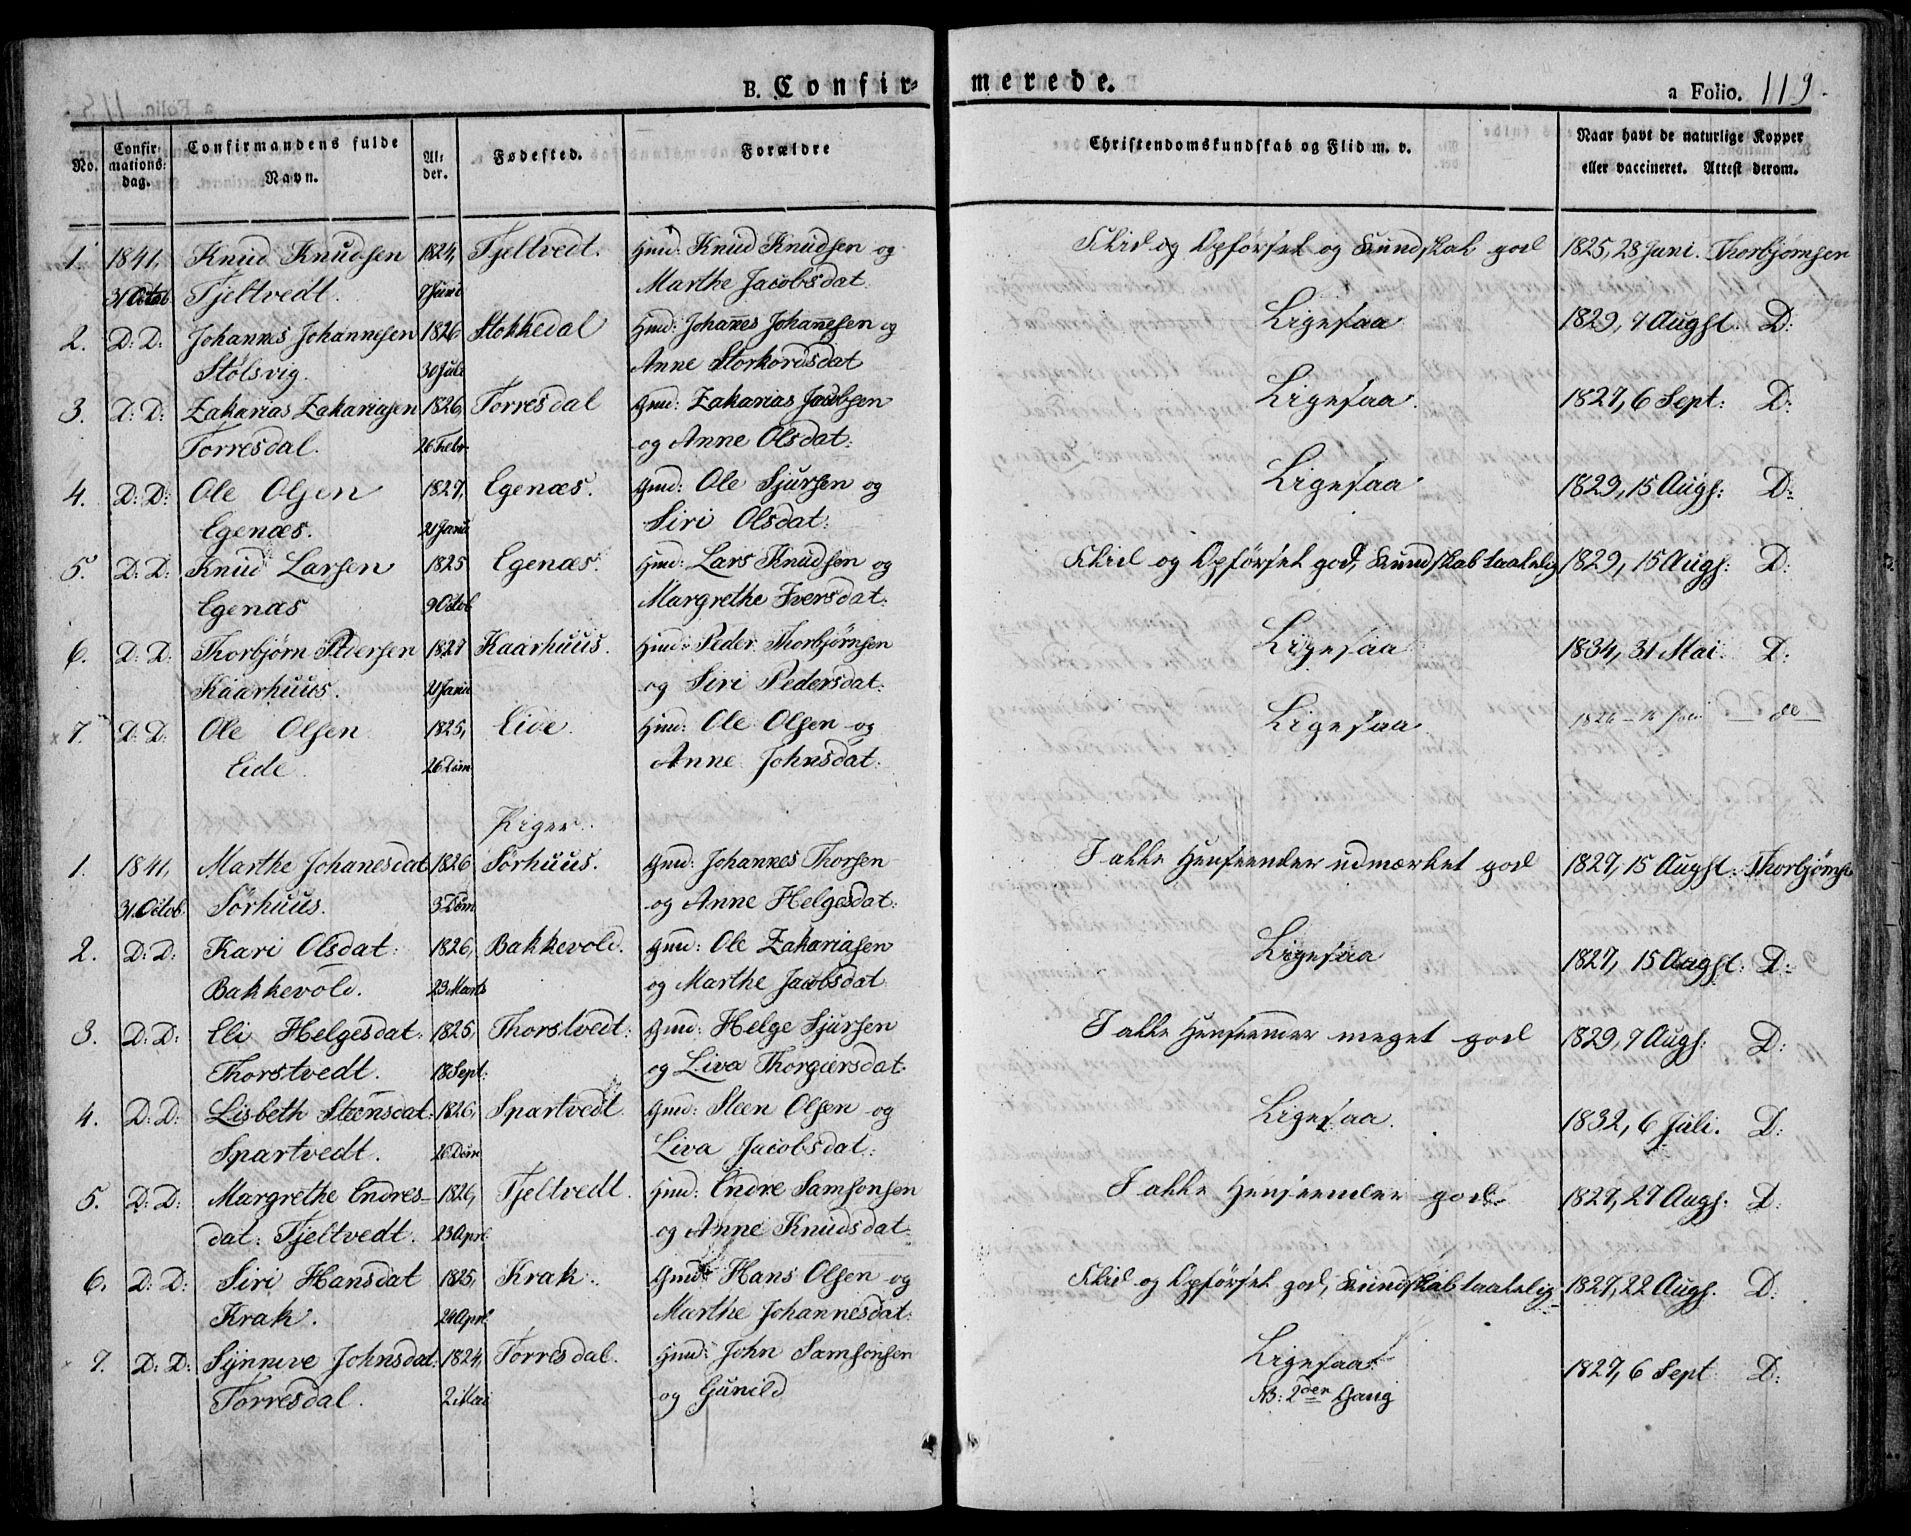 B. Confir-
merede.
a Folio. 119
No.
Confir-
mations-
dag.
Confirmandens fulde
Navn.
Al-
der.
Fødested.
Forældre
Christendomskundskab og Flid m. v.
Naar havt de naturlige Kopper
eller vaccineret. Attest derom.
1. 1841, Knud Knudsen 1824, Fjeltvedt. Gmd: Knud Knudsen og Flid og Opførsel og Kundskab god 1825, 28 Juni. Thorbjørnsen
31 Octob. Fjeltvedt. 7 Juni Marthe Jacobsdat
2. D: D: Johannes Johannesen 1826 Stokkedal Hmd: Johannes Johannesen og Ligesaa 1829, 7 Augst. D:
Stølsvig. 30 Juli Anne Storkordsdat
3. D: D: Zakarias Zakariasen 1826, Torresdal Gmd: Zakarias Jacobsen Ligesaa. 1827, 6 Sept: D:
Torresdal. 26 Febr. og Anne Olsdat:
4. D: D: Ole Olsen 1827, Egenæs. Gmd: Ole Sjursen og Ligesaa 1829, 15 Augs: D:
Egenæs. 21 Janu Siri Olsdat:
5. D: D: Knud Larsen 1825 Egenæs. Hmd: Lars Knudsen og Flid og Opførsel god, Kundskab taalelig 1829, 15 Augs: D:
Egenæs 9 Octob Margrethe Iversdat:
6. D: D: Thorbjørn Pedersen 1827 Kaarhuus. Hmd: Peder Thorbjørnsen Ligesaa 1834, 31 Mai: D:
Kaarhuus. 21 Janu og Siri Pedersdat:
7. D: D: Ole Olsen 1825, Eide. Hmd: Ole Olsen og Ligesaa 1826 do
Eide. 26 Dcm Anne Johnsdat:
Piger.
1. 1841, Marthe Johanesdat 1826 Sørhuus. Gmd: Johannes Thorsen I alle Henseender udmærket god 1827, 15 Augst: Thorbjørns
31. Octob. Sørhuus. 3 Dcm og Anne Helgesdat:
2. D: D: Kari Olsdat: 1826, Bakkevold. Gmd: Ole Zakariasen Ligesaa 1827, 15 Augst: D:
Bakkevold. 23 Marts og Marthe Jacobsdat
3. D: D: Eli Helgesdat: 1825, Thorstvedt: Gmd: Helge Sjursen I alle Henseender meget god 1829, 7 Augs: D:
Thorstvedt. 18 Sept: og Liva Thorgiersdat.
4. D: D: Lisbeth Steensdat: 1826, Spartvedt. Gmd: Steen Olsen og Ligesaa. 1832, 6 Juli. D:
Spartvedt. 26 Dcm Liva Jacobsdat:
5. D: D: Margrethe Endres- 1826, Fjeltvedt. Hmd: Endre Samsonsen I alle Henseender god. 1827, 27 Augs: D:
dat: Fjeltvedt. 23 Aprl og Anne Knudsdat:
6. D: D: Siri Hansdat 1825, Krak. Gmd: Hans Olsen og Flid og Opførsel god, Kundskab taalelig 1827, 22 Augs. D:
Krak. 24 Aprl Marthe Johannesdat:
7. D: D: Synneve Johnsdat: 1824, Torresdal. Hmd: John Samsonsen Ligesaa. 1827, 6 Sept D:
Torresdal. 2 Mai og Gunild NB: 2den Gang